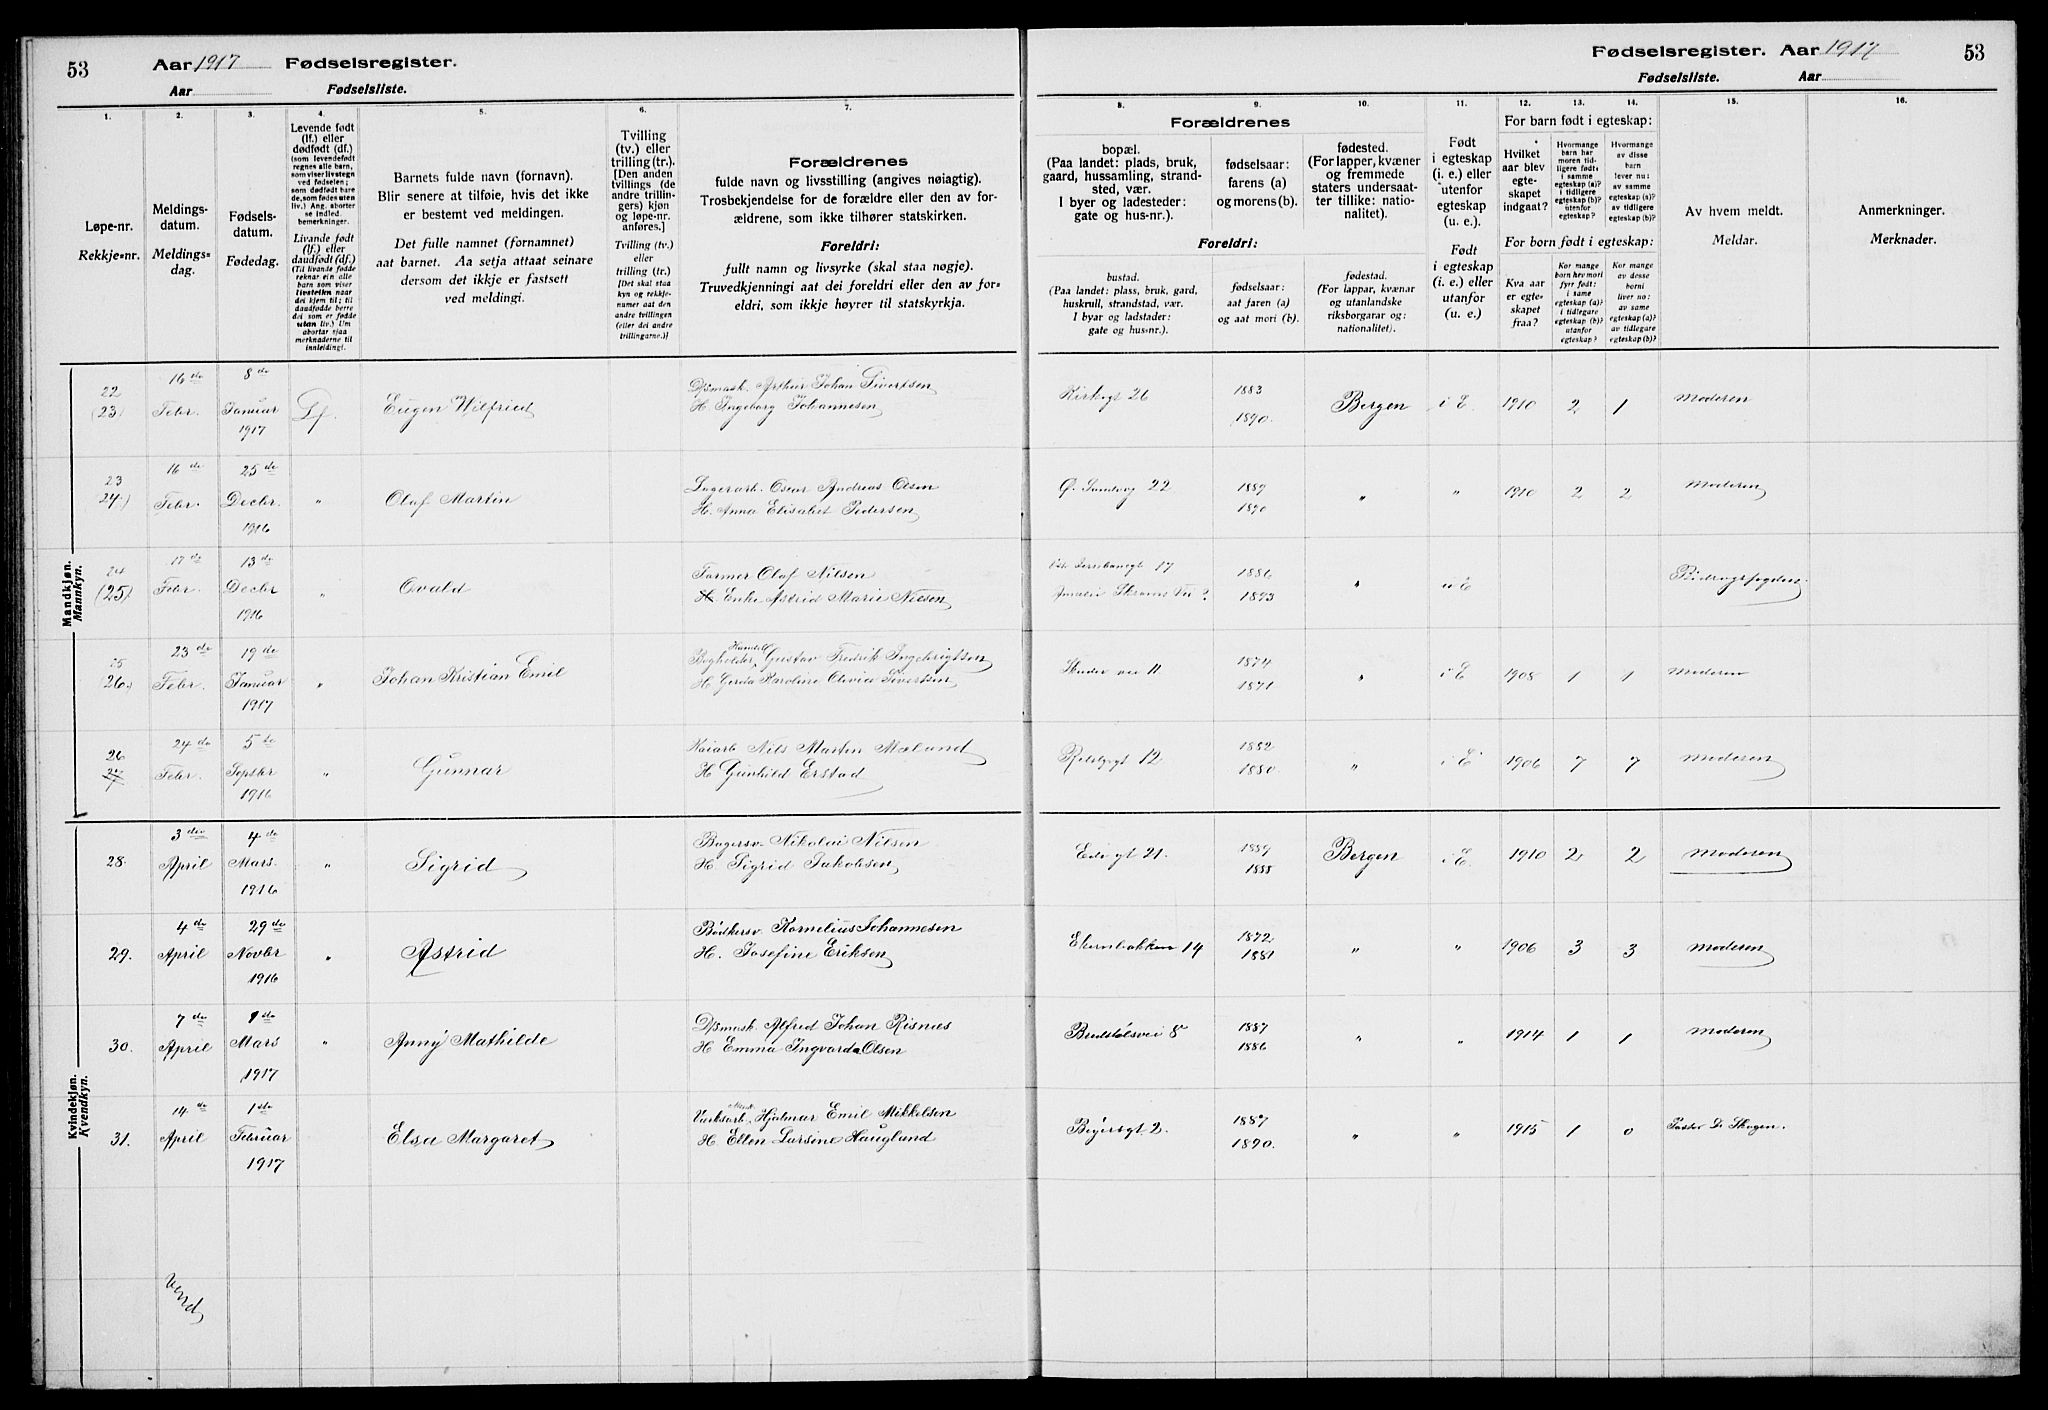 53
Aar 1917 Fødselsregister.
Aar Fødselsliste.
Fødselsregister. Aar 1917
Fødselsliste. Aar
53
1. 2. 3. 4. 5. 6. 7. 8. 9. 10. 11. 12. 13. 14. 15. 16.
Løpe-nr.
Rekkje=nr.
Meldings-
datum.
Meldings=
dag.
Fødsels-
datum.
Fødedag.
Levende født
(lf.) eller
dødfødt (df.)
(som levendefødt
regnes alle barn,
som viser livstegn
ved fødselen;
som dødfødt bare
de, som fødes uten
liv.) Ang. aborter
se indled.
bemerkninger.
Livande født
(lf.) eller
daudfødt (df.)
(Til livande fødde
reknar ein alle
barn som viser
livsteikn naar
dei kjem til; til
daudfødde berre
dei som er fødde
utan liv.) Um
abortar sjaa
merknaderne til
innleiding).
Barnets fulde navn (fornavn).
Blir senere at tilføie, hvis det ikke
er bestemt ved meldingen.
Det fulle namnet (fornamnet)
aat barnet. Aa setja attaat seinare
dersom det ikkje er fastsett
ved meldingi.
Tvilling
(tv.) eller
trilling (tr.).
[Den anden
tvillings (de
andre trillin-
gers) kjøn
og løpe-nr.
anføres.]
Tvilling (tv.)
eller
trilling (tr.)
[Det skal staa
kyn og rekkje-
numer aat den
andre tvillingen
(eller dei andre
trillingarne.)]
Forældrenes
fulde navn og livsstilling (angives nøiagtig).
Trosbekjendelse for de forældre eller den av for-
ældrene, som ikke tilhører statskirken.
Foreldri:
fullt namn og livsyrke (skal staa nøgje).
Truvedkjenningi aat dei foreldri eller den av for=
eldri, som ikkje høyrer til statskyrkja.
Forældrenes
bopæl.
(Paa landet: plads, bruk,
gaard, hussamling, strand-
sted, vær.
I byer og ladesteder:
gate og hus-nr.).
fødselsaar:
farens (a)
og morens (b).
fødested.
(For lapper, kvæner
og fremmede
staters undersaat-
ter tillike: natio-
nalitet).
Foreldri:
bustad.
(Paa landet: plass, bruk, gard,
huskrull, strandstad, vær.
I byar og ladstader:
gate og hus=nr.).
fødselsaar:
aat faren (a)
og aat mori (b).
fødestad.
(For lappar, kvænar
og utanlandske
riksborgarar og:
nationalitet).
Født
i egteskap
(i. e.) eller
utenfor
egteskap
(u. e.).
Født
i egteskap
(i. e.) eller
utanfor
(u. e.)
For barn født i egteskap:
Hvilket
aar blev
egte-
skapet
indgaat?
Hvormange
barn har
moren tid-
ligere født:
i samme
egteskap (a)?
i tidligere
egteskap (b)?
utenfor
egteskap?
Hvormange
av disse
barn
lever nu:
av samme
egteskap (a)?
av tidligere
egteskap (b)?
For born født i egteskap:
Kva aar
er egte=
skapet
fraa?
Kor mange
barn hev mori
fyrr født:
i same
egteskap (a)?
i tidlegare
egteskap (b)?
utanfor
egteskap?
Kor mange
av desse
borni
liver no:
av same
egteskap (a)?
av tidlegare
egteskap (b)?
Av hvem meldt.
Meldar.
Anmerkninger.
Merknader.
Mandkjøn.
Mannkyn.
22 (23) 16de Febr. 8de Januar 1917 Lf. Eugen Wilfried
Arthur Johan Sivertsen
H. Ingeborg Johannesen
Kirkegt 26 1883 1890. Bergen i E. 1910 2 1 Moderen
23 24.) 16de Febr. 25de Decbr. 1916 " Olaf Martin
Lagerarb. Oscar Andreas Olsen
H. Anna Elisabet Pedersen
22 1889 1890 " " 1910 2 2 Moderen
24 (25) 17de Febr. 13de Decbr 1916 " Ovald
Former Olaf Nilsen
H. Enke Astrid Marie Nilsen
17 1886 1893 " u E Bidragsfogden
25 26.) 23de Febr. 19de Januar 1917 " Johan Kristian Emil
Bogholder, Gustav Fredrik Ingebrigtsen
H Gerda Karoline Olivia Sivertsen
11 1874 1871 " i E 1908 1 1 Moderen
26 27 24de Febr. 5te Septbr 1916 " Gunnar
Kaiarb Nils Martin Mælund
H Gunhild Erstad
12 1882 1880. " i E 1906 7 7 Moderen
Kvindekjøn.
Kvendkyn.
28. 3die April 4de Mars. 1916 " Sigrid
Bagersv. Nikolai Nilsen
H. Sigrid Jakobsen
21. 1889 1888 Bergen i E. 1910 2 2 Moderen
29. 4de April 29de Novbr 1916 " Astrid
Bødkersv. Kornelius Johannesen
H. Josefine Eriksen
14 1872 1881 " " 1906 3 3 Moderen
30. 7de April 1de Mars 1917 " Anny Mathilde
Alfred Johan Risnæs
H Emma Ingvarda Olsen
8 1887 1886 " " 1914 1 1 Moderen
31. 14.de April 1ste Februar 1917 Elsa Margaret
Verksarb. Hjalmar Emil Mikkelsen
H Ellen Larsine Hauglund
2. 1887 1890. " " 1915 1 0 Pastor D. Skagen.
Vend